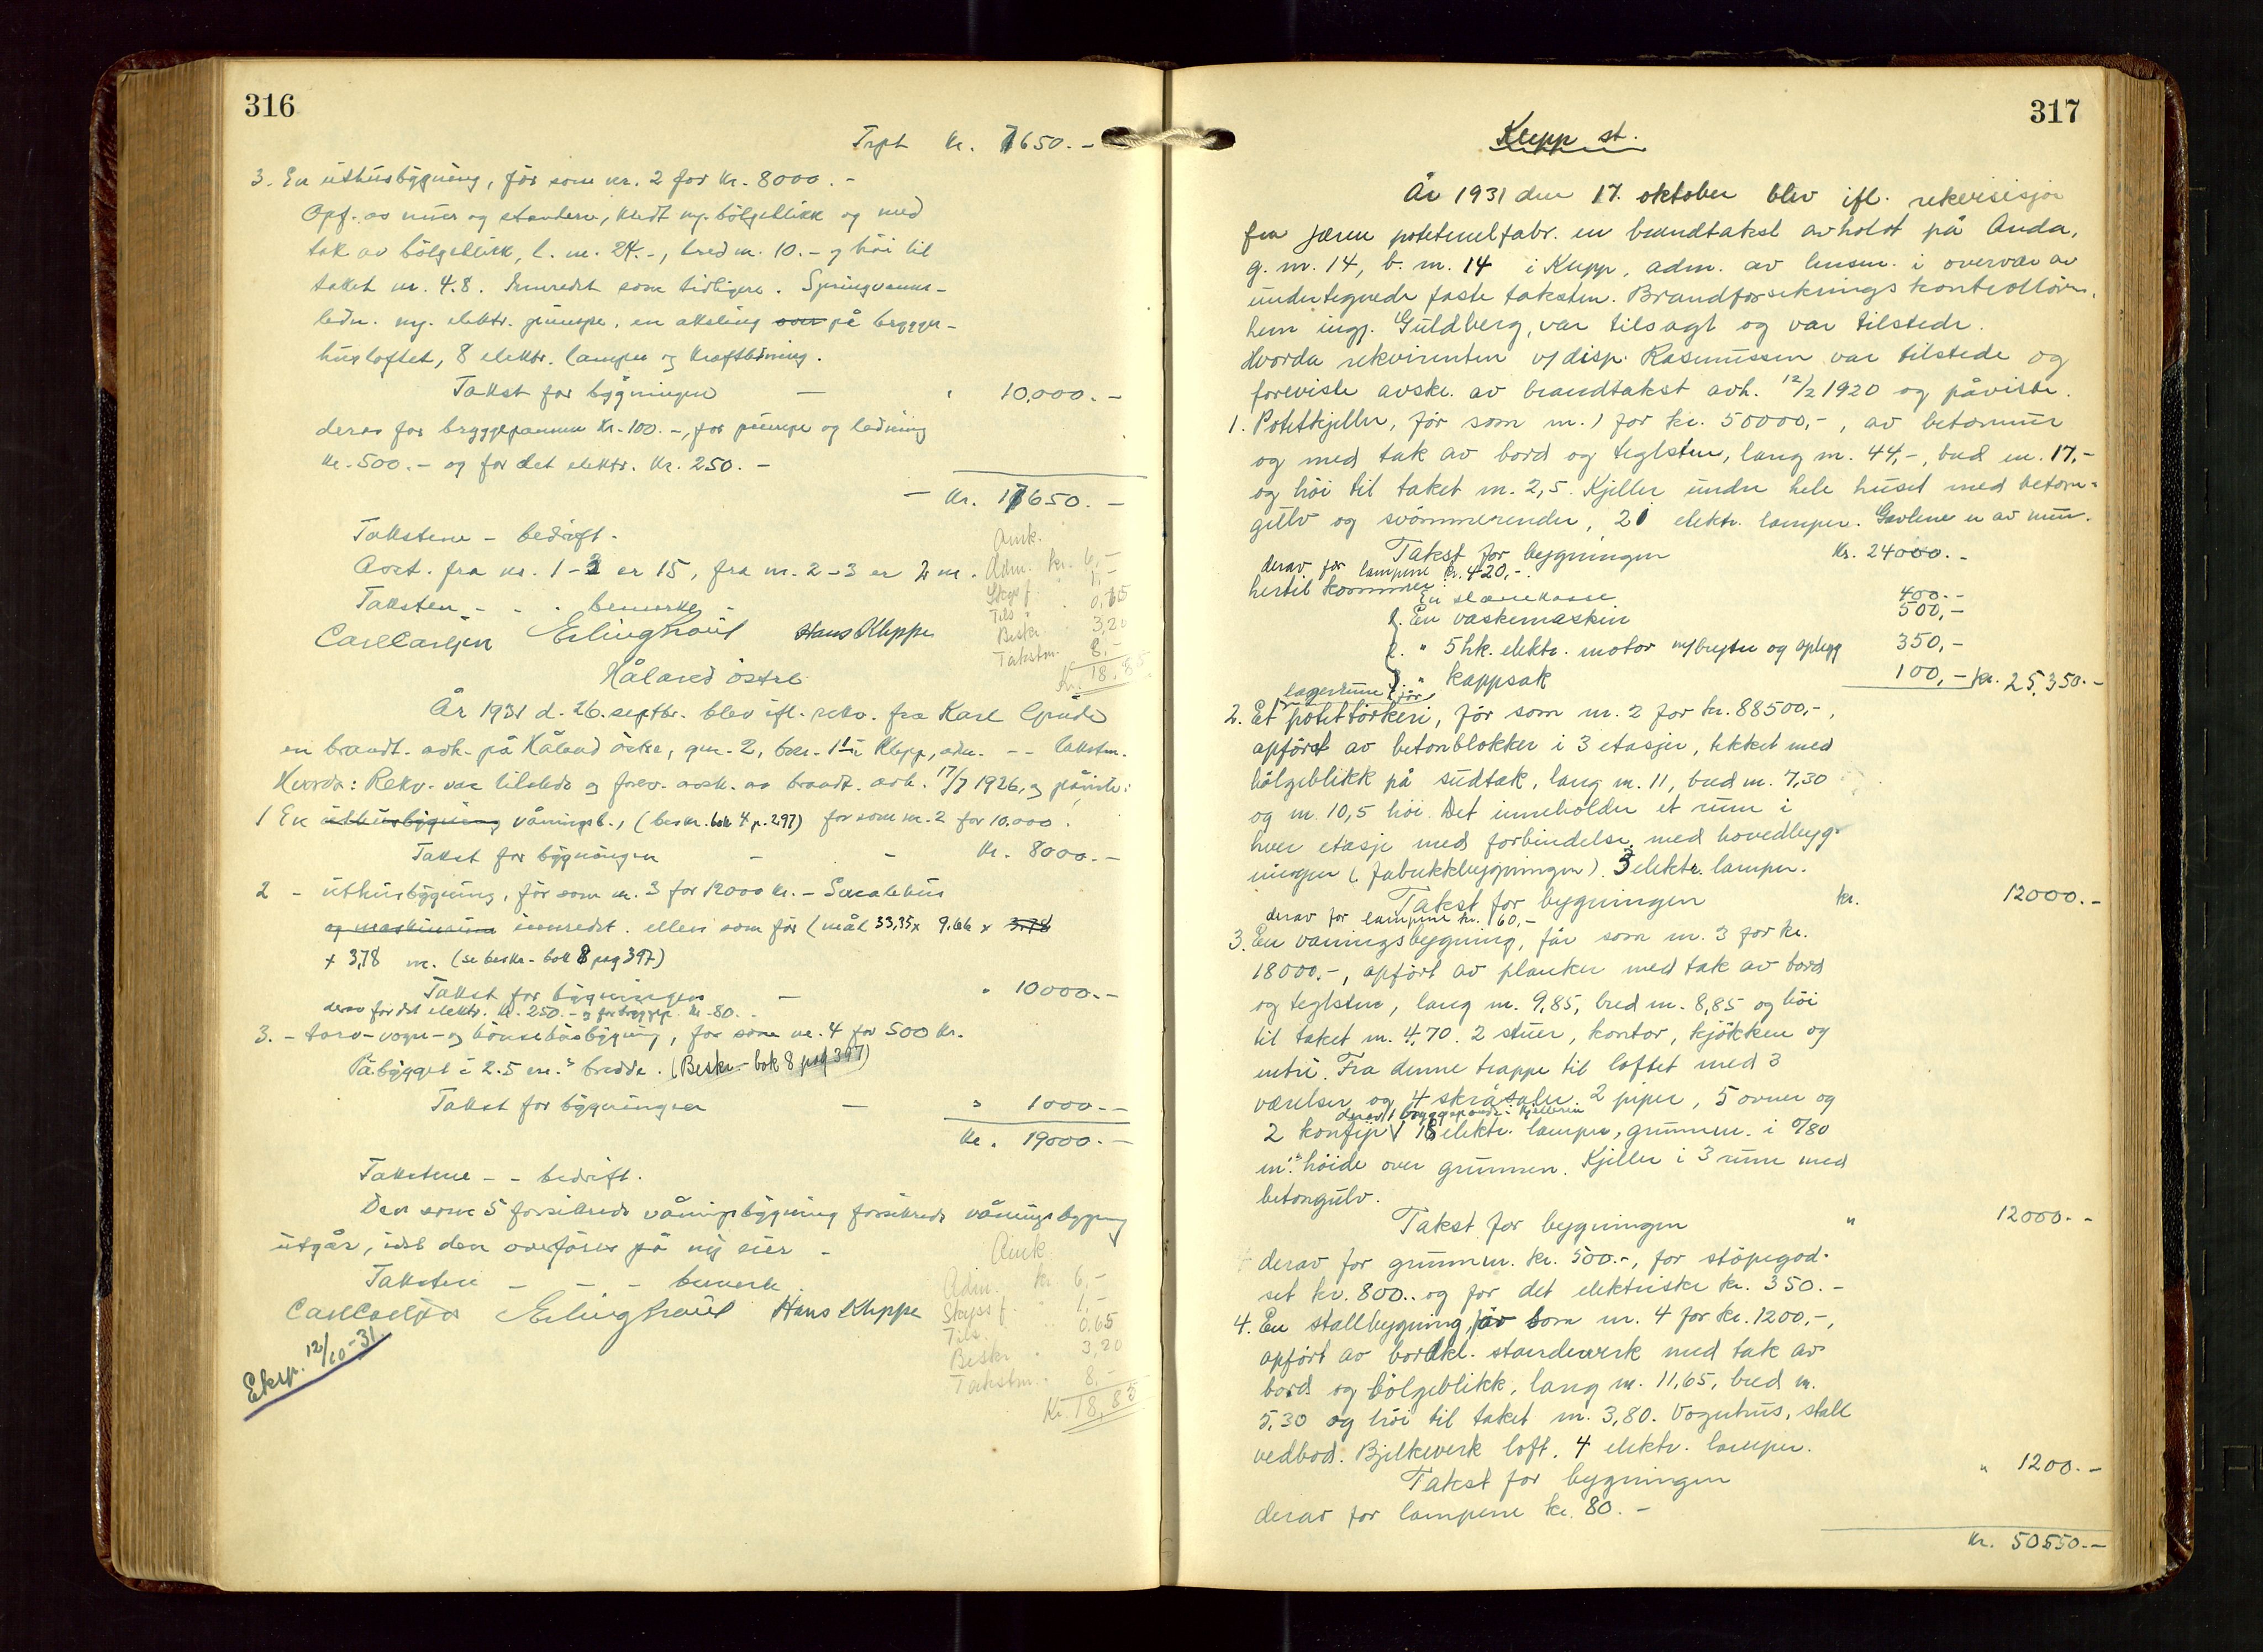 316
Trpt kr. 7650.-
3. En uthusbygning, før som nr. 2 for kr. 8000.-
Opf. av mur og standerv, klædt m. bølgeblikk og med
tak av bølgeblikk, l. m. 24.-, bred m. 10.- og høi til
taket m. 4.8. Innredet som tidligere. Springvanns-
ledn. m. elektr. pumpe, en aksling som på brygge-
husloftet, 8 elektr. lamper og kraftledning.
Takst for bygningen — " 10,000.-
derav for bryggepannen kr. 100.-, for pumpe og ledning
kr. 500.- og for det elektr. kr. 250.-
— kr. 17650.-
Takstene - bedrift.
Avst. fra nr. 1-3 er 15, fra nr. 2-3 er 2 m.
Taksten - - - bemerke -
Carl Carlsen Erling Hauul Hans Kleppe
Amk.
Adm. kr. 6,-
Skyssf. " 1,-
Tils. " 0,65
Beskr. 3,20
Takstm. 8,-
Kr. 18,85
Håland østre
År 1931 d. 26. septbr. blev ifl. rekv. fra Karl Grude
en brandt. avh. på Håland østre, gnr. 2, bnr. 1 i Klepp, adm. - - takstm.
Hvorda: Rekv. var tilstede og forev. avsk. av brandt. avh. 17/7 1926, og påviste:
1 En uthusbygning våningsb., (beskr. bok 4 p. 297) før som nr. 2 for 10.000.
Takst for bygningen - - kr. 8000.-
2 - uthusbygning, før som nr. 3 for 12000 kr. - Smalehus
og maskinrum innredet. ellers som før (mål 33,35 x 9.66 x 3.78
+ 3,78 m. (se beskr. bok 8 pag 397)
Takst for bygningen — " 10000.-
derav for det elektr. kr. 250.- og for bryggep. kr. 80.-
3. - torv-vogn- og hønsehusbygning, før som nr. 4 for 500 kr.
Påbygget i 2.5 m.s bredde. (Beskr. bok 8 pag 397)
Takst for bygningen — " 1000.-
kr. 19000.-
Takstene - - bedrift.
Den som 5 forsikrede våningsbygning forsikrede våningsbygning
utgår, idet den overføres på ny eier -
Taksten - - - bemerk.
Carl Carlsen Erling Hauul Hans Kleppe
Eksp. 12/10-31
Amk
Adm. kr. 6,-
Skyssf. " 1,-
Tils. " 0,65
Beskr. " 3,20
Takstm. " 8,-
Kr. 18,85
317
Klepp st.
År 1931 den 17. oktober blev ifl. rekvisisjon
fra Jæren potetmelfabr. en brandtakst avholdt på Anda,
g. nr. 14, b. nr. 14 i Klepp, adm. av lensm. i overvær av
undertegnede faste takstm. Brandforsikrings kontrolløren,
herr ingj. Guldberg, var tilsagt og var tilstede.
Hvorda rekvirenten v/disp. Rasmussen var tilstede og
foreviste avskr. av brandtakst avh. 12/2 1920 og påviste.
1. Potetkjeller, før som nr. 1 for kr. 50000,-, av betonmur
og med tak av bord og teglsten, lang m. 44,-, bred m. 17,-
og høi til taket m. 2,5. Kjeller under hele huset med beton-
gulv og svømmerender, 21 elektr. lamper. Gavlene er av mur.
Takst for bygningen kr. 24000.-
derav for lampene kr. 420,-.
hertil kommer:
En 400.-
1. En vaskemaskin 500,-
2. " 5 hk. elektr. motor m/bryter og oplegg 350,-
3. " kappsak 100,- kr. 25,350.-
lagerrum før
2. Et potettørkeri, før som nr. 2 for kr. 88500,-,
opført av betonblokker i 3 etasjer, tekket med
bølgeblikk på sudtak, lang m. 11, bred m. 7,30
og m. 10,5 høi. Det inneholder et rum i
hver etasje med forbindelse med hovedbyg-
ningen (fabrikkbygningen). 3 elektr. lamper.
Takst for bygningen kr. 12000.-
derav for lampene kr. 60,-
3. En våningsbygning, før som nr. 3 for kr.
18000.-, opført av planker med tak av bord
og teglsten, lang m. 9,85, bred m. 8,85 og høi
til taket m. 4,70. 2 stuer, kontor, kjøkken og
entré. Fra denne trappe til loftet med 3
værelser og 4 skråsaler. 2 piper, 5 ovner og
derav 1 bryggepande i kjelleren
2 komfyr √ 18 elektr. lamper, grunnm. i 0/80
m.s høide over grunnen. Kjeller i 3 rum med
betongulv.
Takst for bygningen " 12000.-
derav for grunnm. kr. 500.-, for støpegod-
set kr. 800.- og for det elektriske kr. 350.-
4. En stallbygning, før som nr. 4 for kr. 1200,-,
opført av bordkl. standerverk med tak av
bord og bølgeblikk, lang m. 11,65, bred m.
5,30 og høi til taket m. 3,80. Vognhus, stall
vedbod. Bjelkeverk loft. 4 elektr. lamper.
Takst for bygningen " 1200.-
derav for lampene kr. 80.-
kr. 50550.-